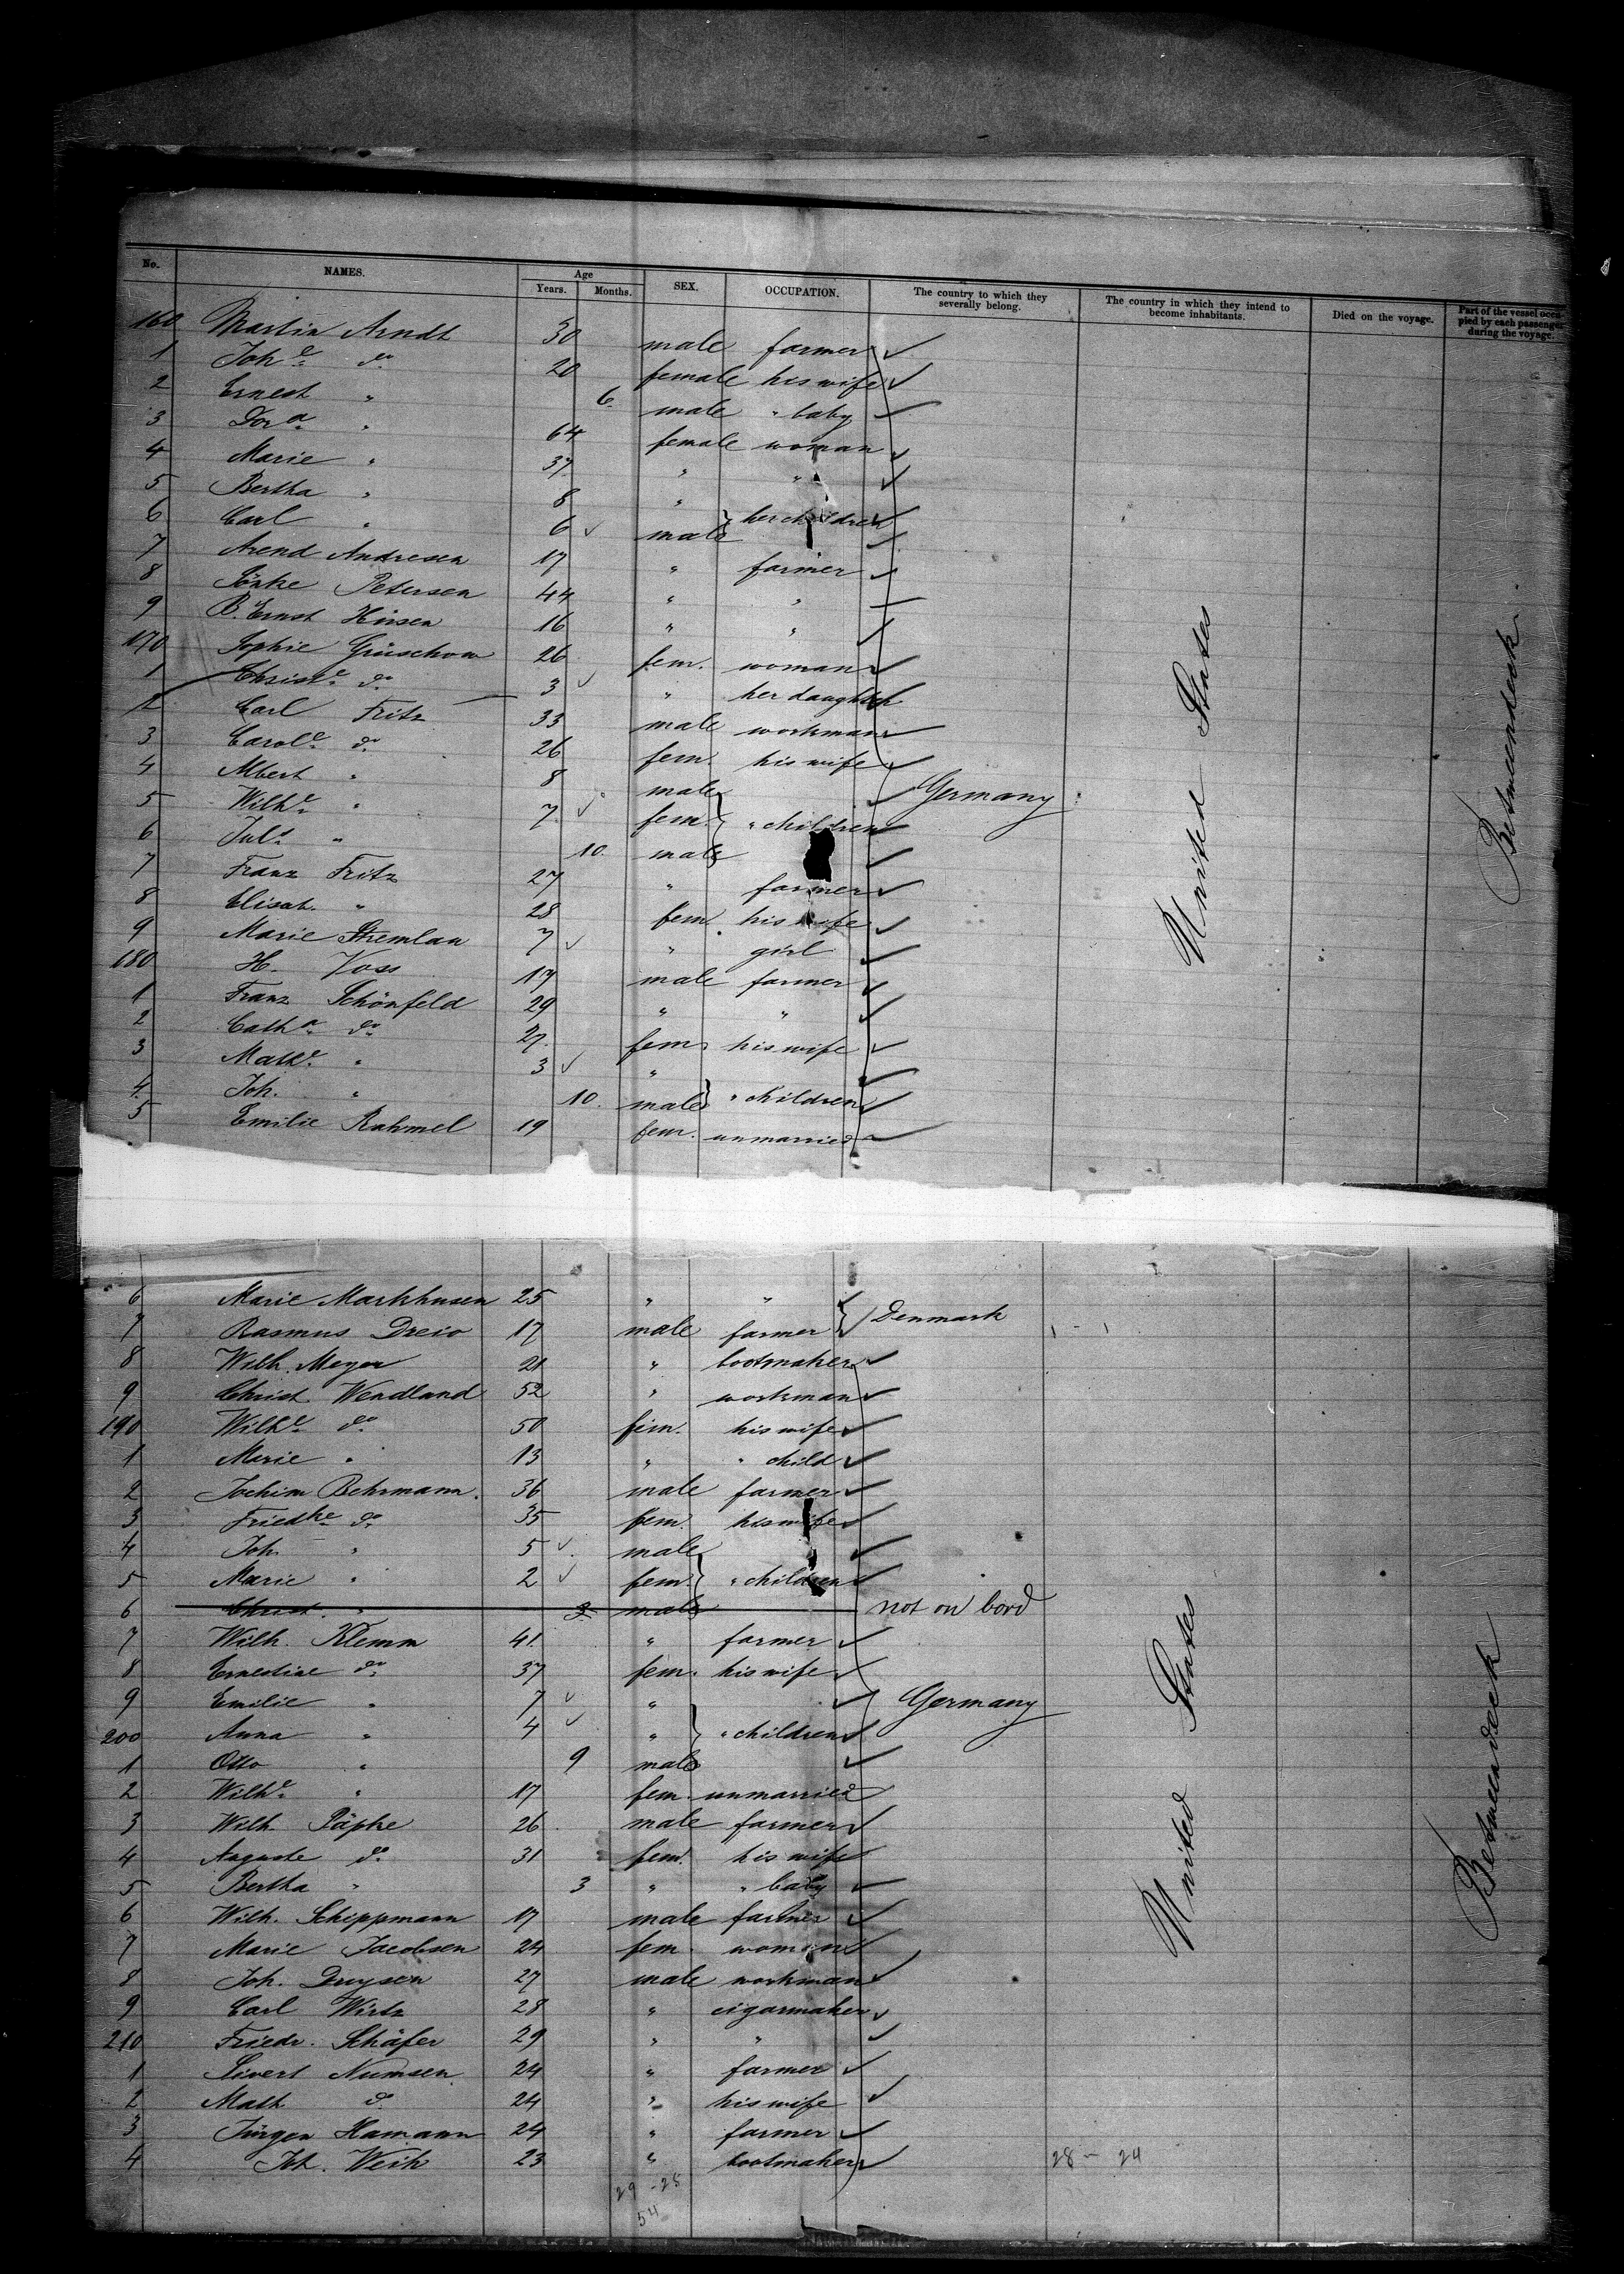 No. NAMES. Age Years. Months. SEX. OCCUPATION. The country to which they severally belong. The country in which they intend to become inhabitants. Died on the voyage. Part of the vessel occupied by each passenger during the voyage.
160 Martin Arndt 30 male farmer
1 Joh.e do 20 female his wife
2 Ernest " 6 male " baby
3 Dor.a " 64 female woman
4 Marie " 37 " "
5 Bertha " 8 "
6 Carl " 6 male her children
7 Arend Andresen 17 " farmer
8 Petersen 44 " "
9 B. Ernst Hinsen 16 " "
170 Sophie Grüschow 26 fem. woman
1 Christe. do 3 " her daughter
2 Carl Fritz 33 male workman
3 Carole. do 26 fem. his wife
4 Albert " 8 male
5 Wilhe. " 7 fem. " children Germany
6 Juls. " 10. male
7 Franz Fritz 27 " farmer
8 Elisab. " 28 fem. his wife
9 Marie 7 " girl
180 H. Voss 17 male farmer
1 Franz Schönfeld 29 " "
2 Catha. do 27. fem. his wife
3 Mathe. " 3 "
4. Joh. " 10. male " children
5 Emilie Rahmel 19 fem. unmarried
United States
Betweendeck
6 Marie Markhusen 25 " "
7 Rasmus Dreio 17 male farmer Denmark 1 - 1
8 Wilh. Meyer 21 " bootmaker
9 Christ Wendland 52 " workman
190 Wilhe. do 50 fem. his wife
1 Marie " 13 " " child
2 Jochim Behrmann. 36 male farmer
3 Friedke do 35 fem. his wife
4 Joh. " 5 male
5 Marie " 2 fem. " children
6 Christ. " 3 male not on bord
7 Wilh. Klemm 41 " farmer
8 Ernestine do 37 fem. his wife
9 Emilie " 7 " Germany
200 Anna " 4 " " children
1 Otto " 9 male
2 Wilhe. " 17 fem. unmarried
3 Wilh. Päpke 26 male farmer
4 Auguste do 31 fem. his wife
5 Bertha " 3 " " baby
6 Wilh. Schippmann 17 male farmer
7 Marie Jacobsen 24 fem. woman
8 Joh. Duysen 27 male workman
9 Carl Wirtz 28 " cigarmaker
210 Friedr. Schäfer 29 " "
1 Sivert Numsen 24 " farmer
2 Math do 24 " his wife
3 Jürgen Hamann 24 " farmer
4 Joh. Weih 23 " bootmaker 28 - 24
29 - 25
54
United States
Betweendeck